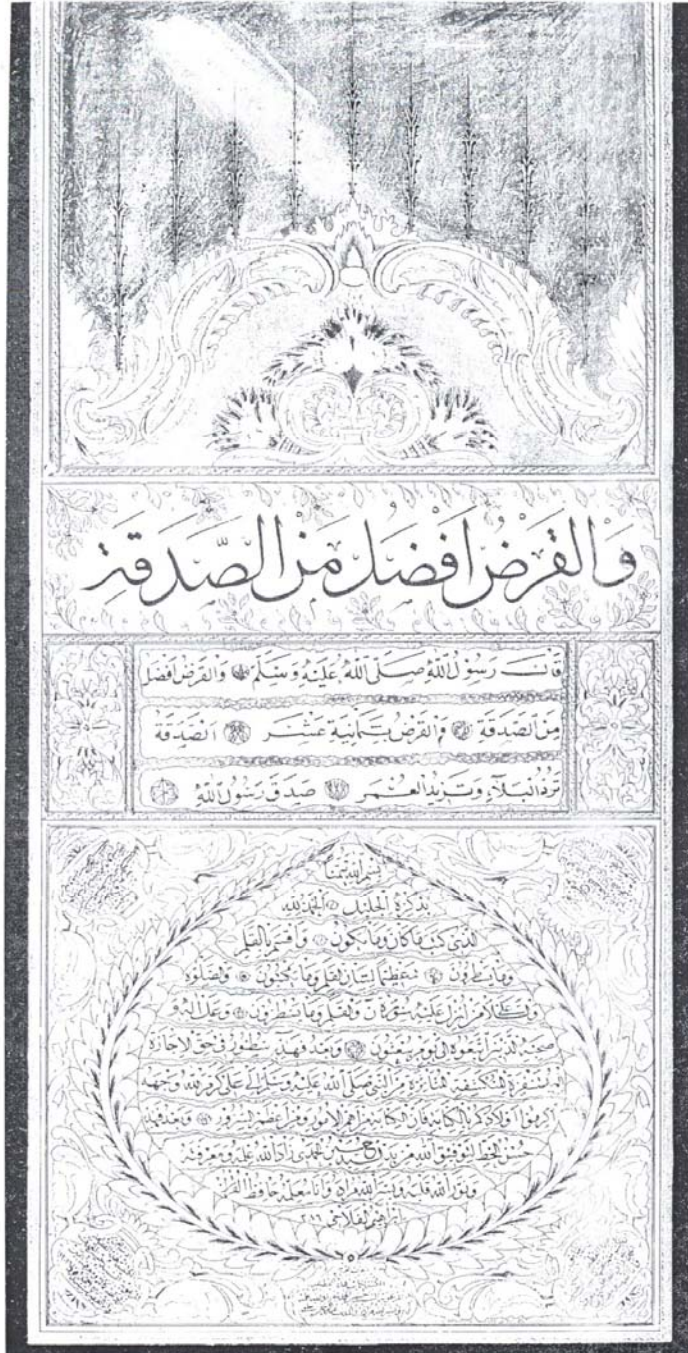 وَالْقَرْضُ اَفْضَلُ مِنَ الصَّدَقَةِ
قَالَ رَسُولُ اللّٰهِ صَلَّى اللّٰهُ عَلَيْهِ وَسَلَّمَ وَالْقَرْضُ اَفْضَلُ
مِنَ الصَّدَقَةِ وَالْقَرْضُ بِثَمَانِيَةَ عَشَرَ اَلصَّدَقَةُ
تَرُدُّ الْبَلَاءَ وَتَزِيدُ الْعُمُرَ صَدَقَ رَسُولُ اللّٰهِ
بسم الله تيمنا
بذكره الجليل الحمد لله
الذى كتب ما كان وما يكون واقسم بالقلم
وما يسطرون تعظيما لشان القلم وما يكتبون والصلوة
والسلام من انزل عليه سورة ن والقلم وما يسطرون وعلى اله و
صحبه الذين اتبعوه الى يوم يبعثون وبعد فهذه سطور فى حق الاجازة
من النبى صلى الله عليه وسلم الى على كرم الله وجهه
اكرموا اولادكم بالكتابة فان الكتابة من اهم الامور ومن اعظم السرور وبعد فهذا
حسن الخط الله زاد الله علمه ومعرفته
ونور الله قلبه ويسر الله مراده وانا معلمه حافظ القرآن
ابراهيم